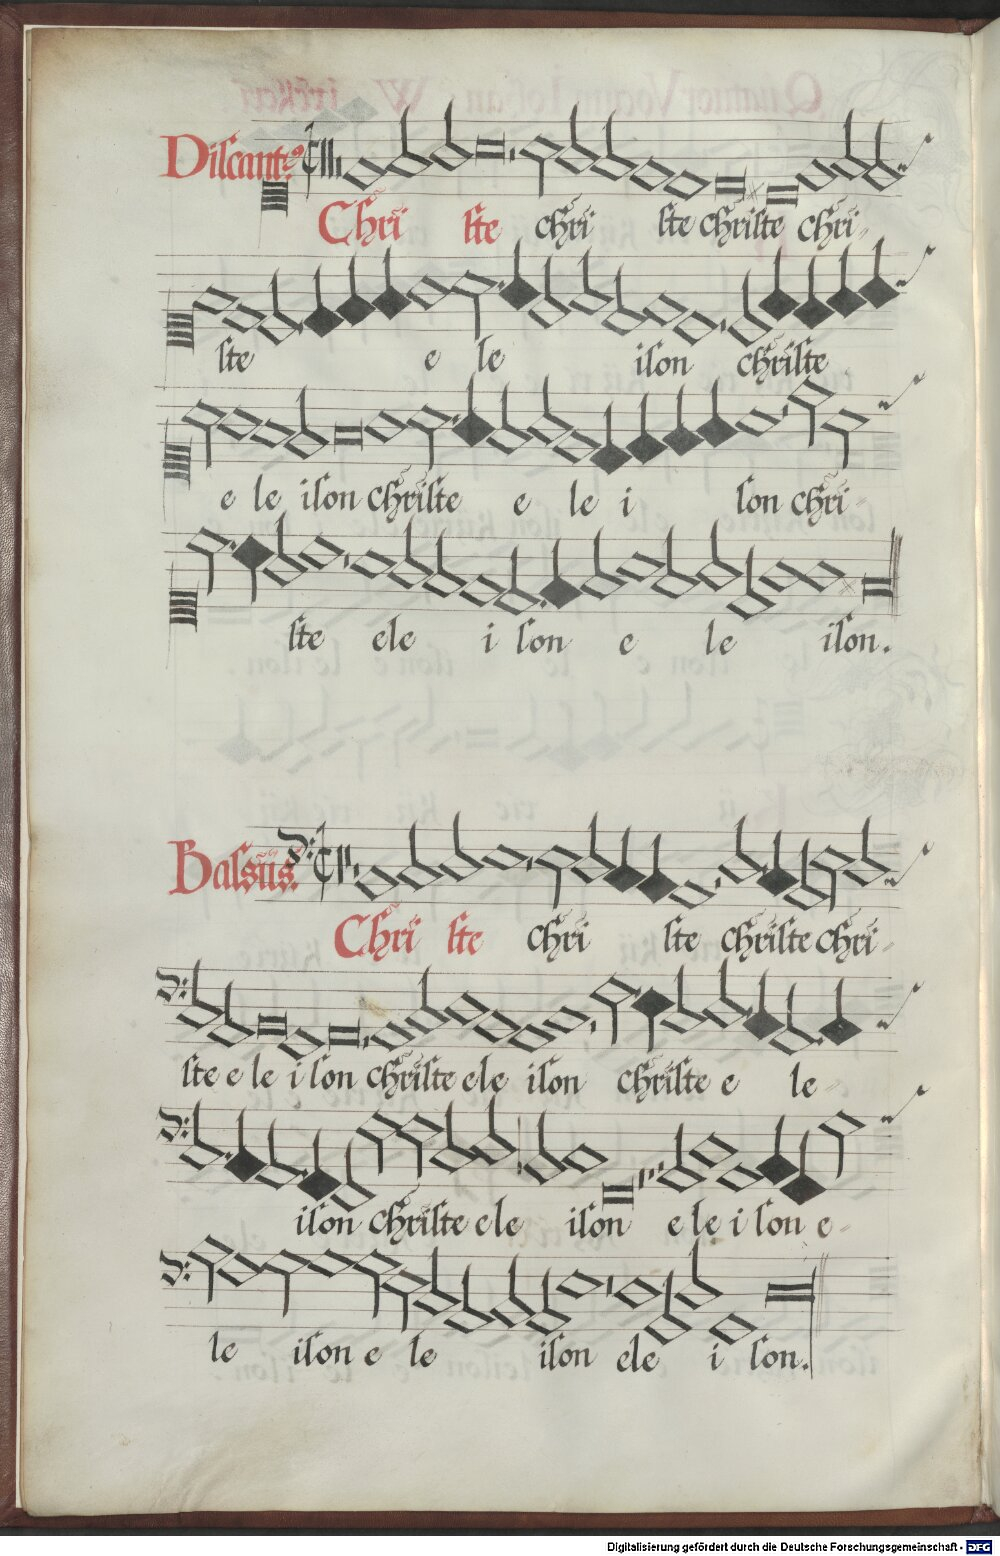 Discantꝰ
Chri ste chri ste christe chri-
ste e le ison christe
e le ison christe e le i son chri-
ste ele i son e le ison.
Bassus.
Chri ste chri ste christe chri-
ste e le i son christe ele ison christe e le-
ison christe ele ison e le i son e-
le ison e le ison ele i son.
Digitalisierung gefördert durch die Deutsche Forschungsgemeinschaft - DFG